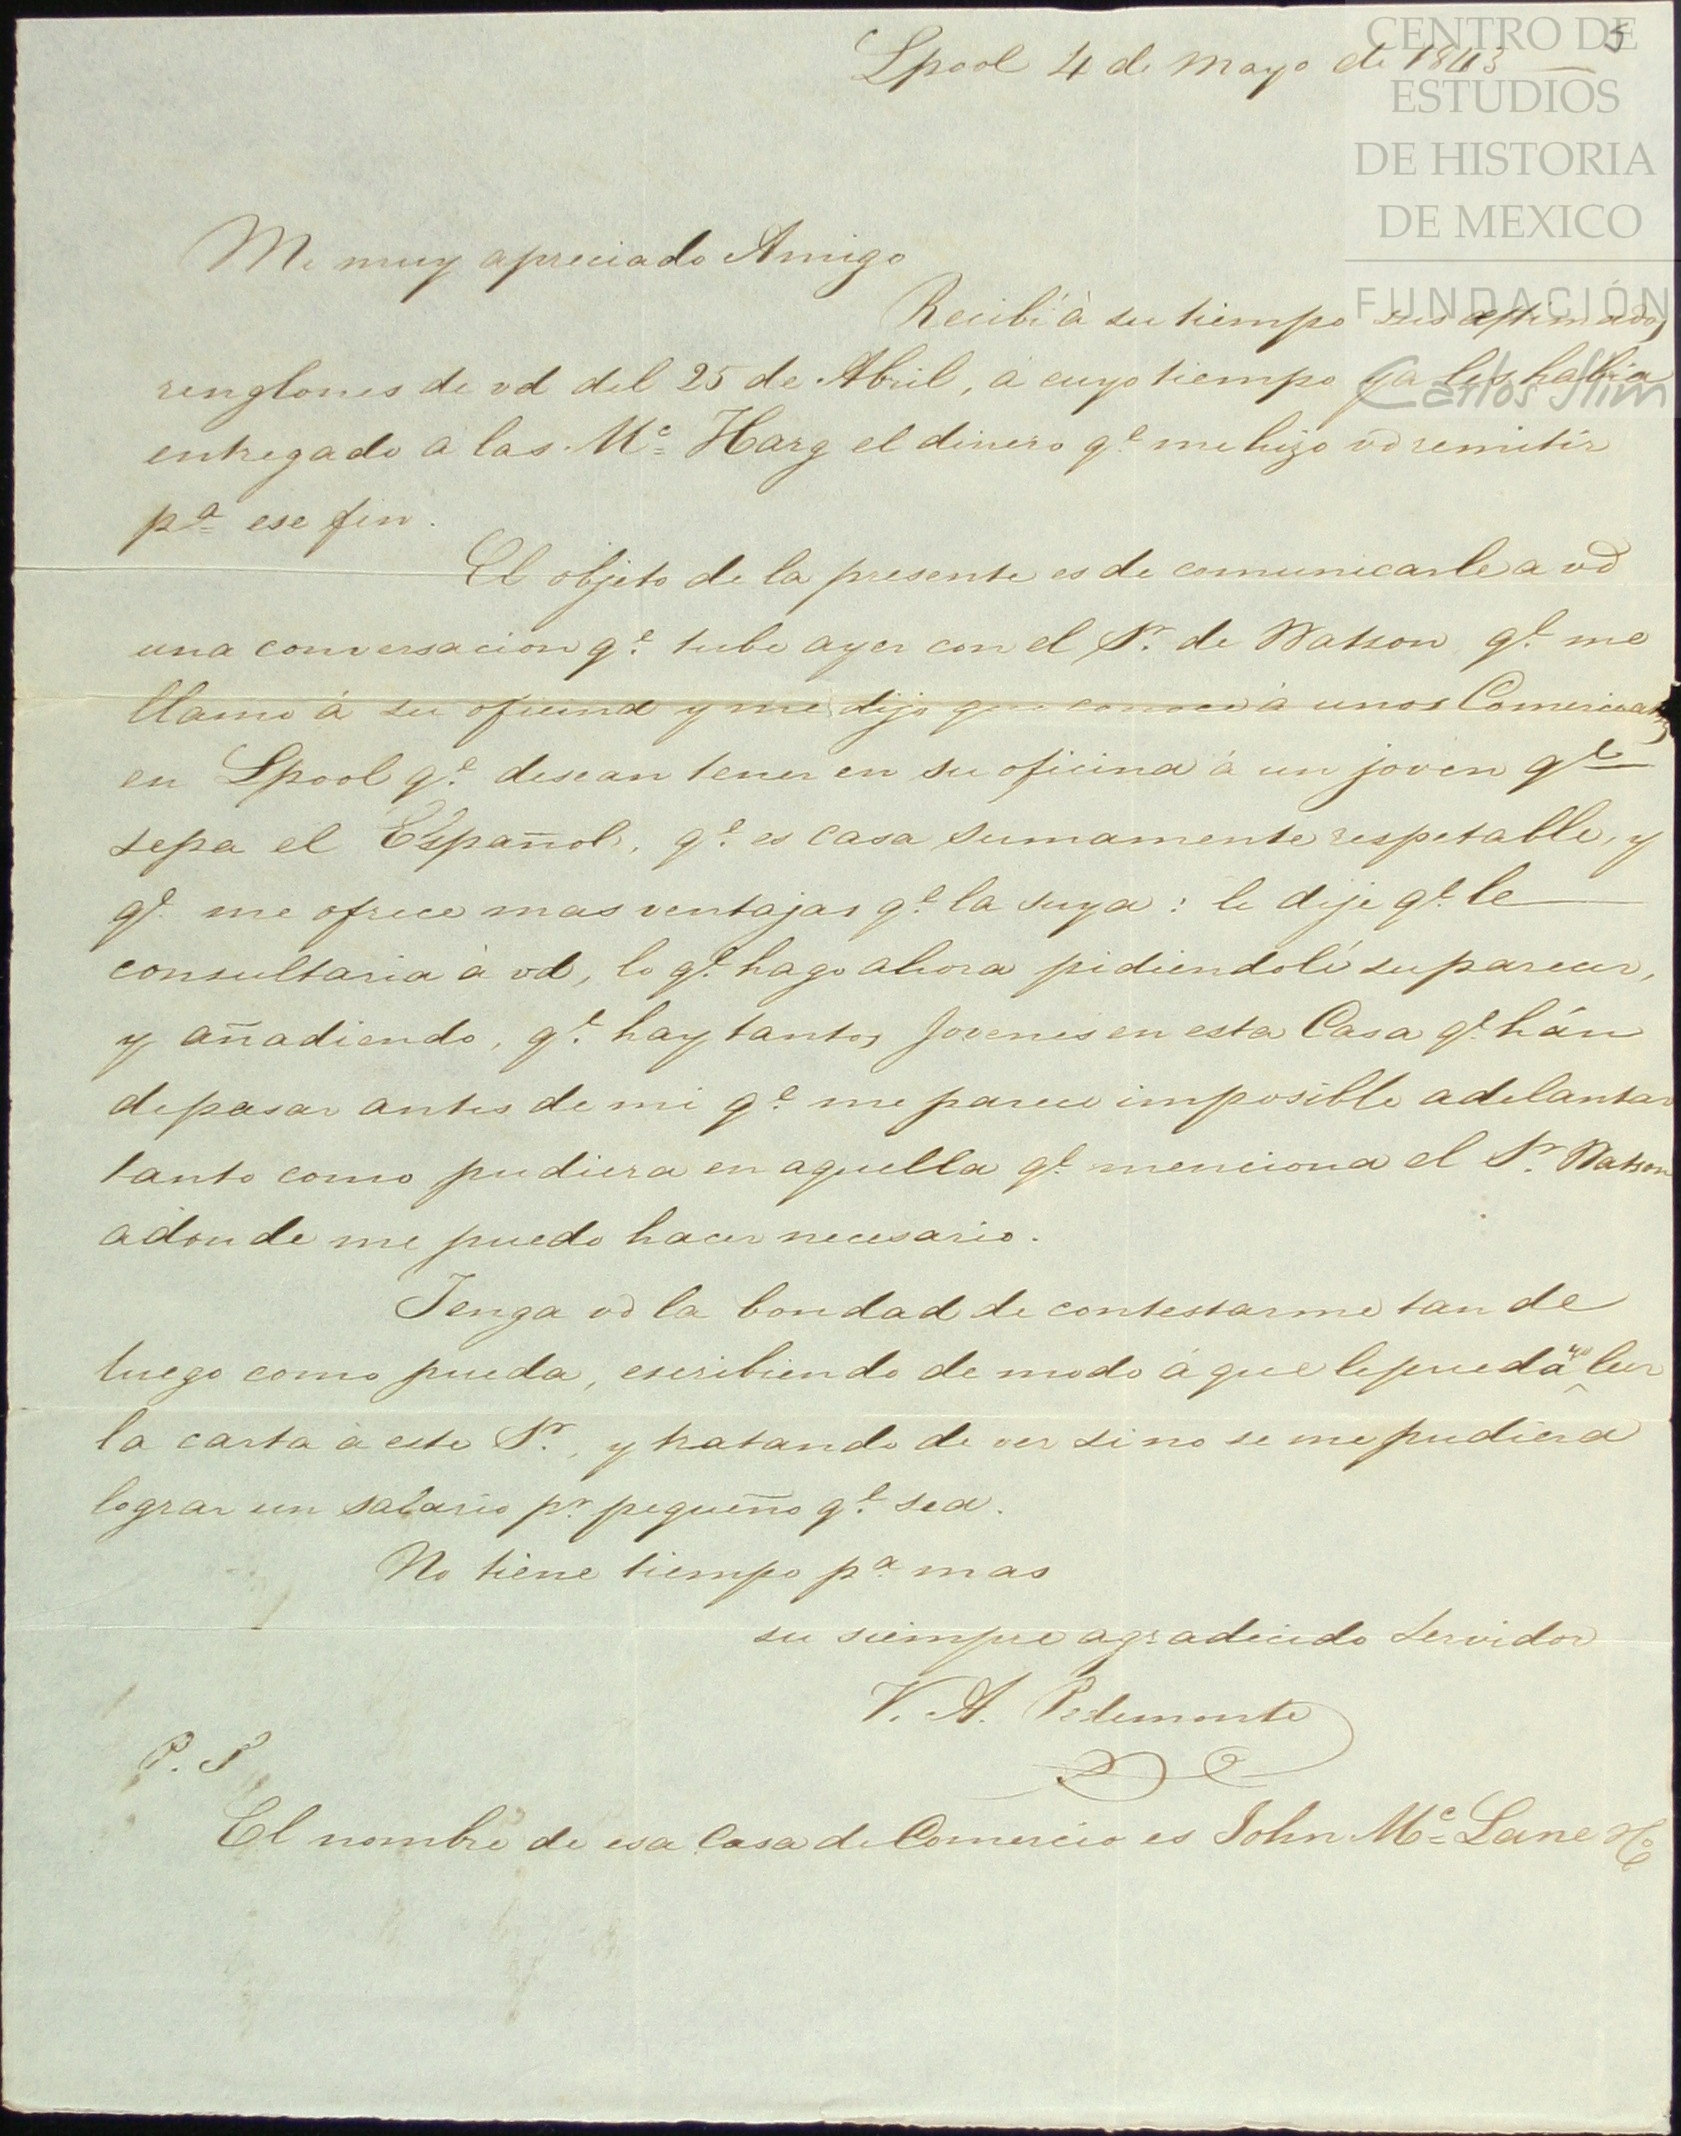 5
Lpool 4 de Mayo de 1843
CENTRO DE
ESTUDIOS
DE HISTORIA
DE MEXICO
FUNDACIÓN
Carlos Slim
Mi muy apreciado Amigo
Recibí à su tiempo sus estimados
renglones de vd del 25 de Abril, á cuyo tiempo ya les habia
entregado a las Mc Harg el dinero qe me hizo vd remitir
pa ese fin.
El objeto de la presente es de comunicarle a vd
una conversacion qe tube ayer con el Sr. de Watson qe me
llamo á su oficina y me dijo que conoce á unos Comerciantes
en Lpool qe desean tener en su oficina á un joven qe
sepa el Español, qe es casa sumamente respetable, y
qe me ofrece mas ventajas qe la suya: le dije qe le
consultaria à vd, lo qe hago ahora pidiendolé su parecer,
y añadiendo, qe hay tantos Jovenes en esta Casa qe hán
de pasar antes de mi qe me parece imposible adelantar
tanto como pudiera en aquella qe menciona el Sr. Watson
adonde me puedo hacer necesario.
Tenga vd la bondad de contestarme tan de
luego como pueda, escribiendo de modo á que le pueda yo leer
la carta à este Sr., y tratando de ver si no se me pudiera
lograr un salario pr pequeño qe sea.
No tiene tiempo pa mas
su siempre agradecido servidor
V. A. Pedemonte
P. S
El nombre de esa Casa de Comercio es John Mc Lane &c